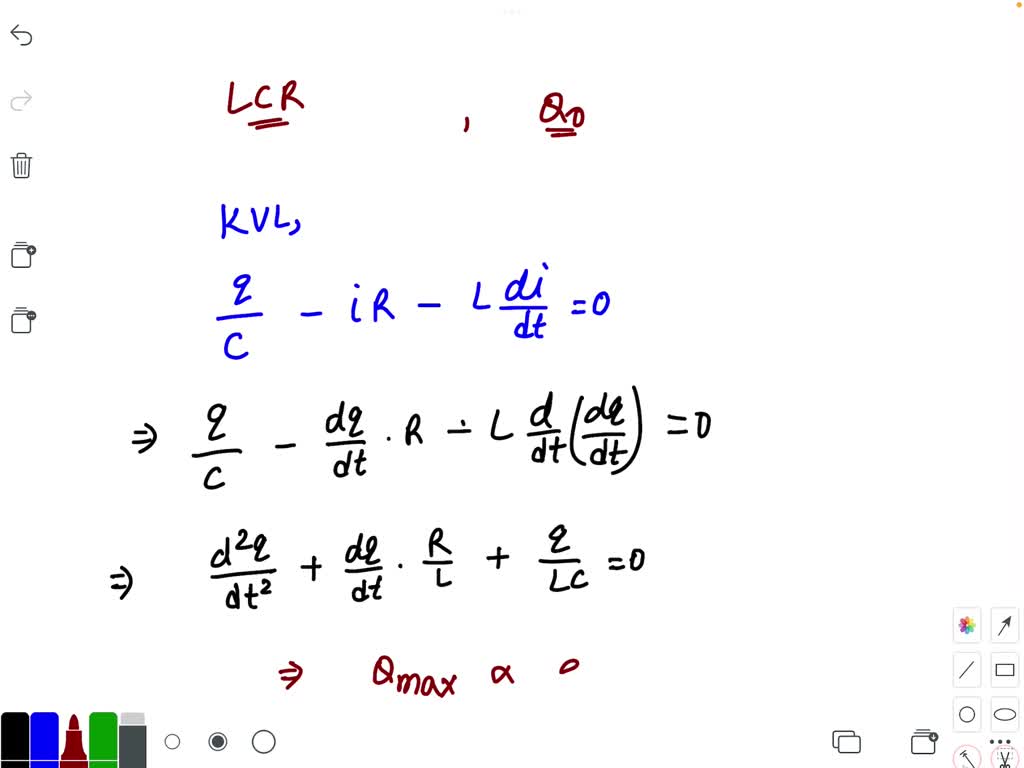 LCR , Q₀
KVL,
q/C - iR - L di/dt = 0
⇒ q/C - dq/dt . R - L d/dt (dq/dt) = 0
⇒ d²q/dt² + dq/dt . R/L + q/LC = 0
⇒ Qmax ∝